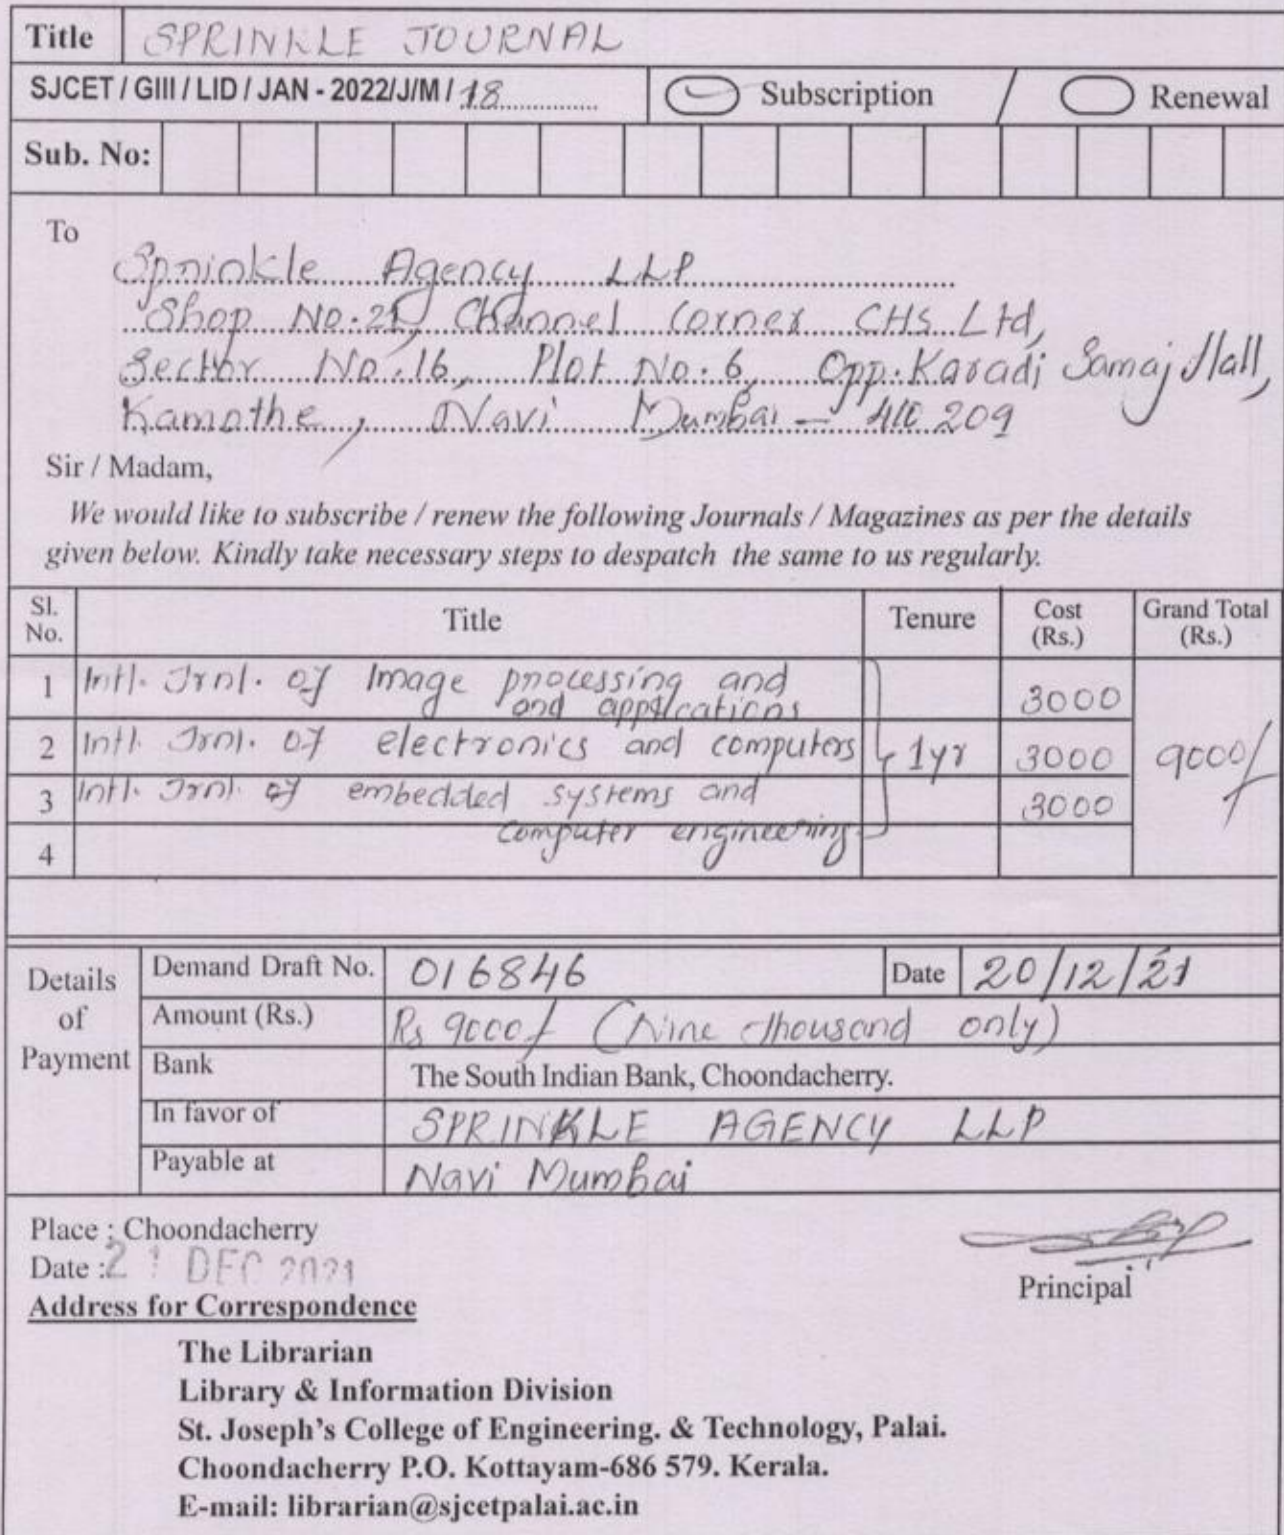 Title SPRINKLE JOURNAL
SJCET / GIII / LID / JAN - 2022/J/M / 18 Subscription / Renewal
Sub. No:
To
Sprinkle Agency LLP
Shop No. 21, Channel Corner CHS Ltd,
Sector No. 16, Plot No. 6, Opp. Karadi Samaj Hall,
Kamothe, Navi Mumbai - 410 209
Sir / Madam,
We would like to subscribe / renew the following Journals / Magazines as per the details
given below. Kindly take necessary steps to despatch the same to us regularly.
Sl. No. Title Tenure Cost (Rs.) Grand Total (Rs.)
1 Intl. Jrnl. of Image processing and 3000
and applications
2 Intl. Jrnl. of electronics and computers 1yr 3000 9000/
3 Intl. Jrnl. of embedded systems and 3000
computer engineering
4
Details of Payment
Demand Draft No. 016846 Date 20/12/21
Amount (Rs.) Rs 9000/ (Nine thousand only)
Bank The South Indian Bank, Choondacherry.
In favor of SPRINKLE AGENCY LLP
Payable at Navi Mumbai
Place : Choondacherry
Date : 21 DEC 2021
Principal
Address for Correspondence
The Librarian
Library & Information Division
St. Joseph's College of Engineering. & Technology, Palai.
Choondacherry P.O. Kottayam-686 579. Kerala.
E-mail: librarian@sjcetpalai.ac.in